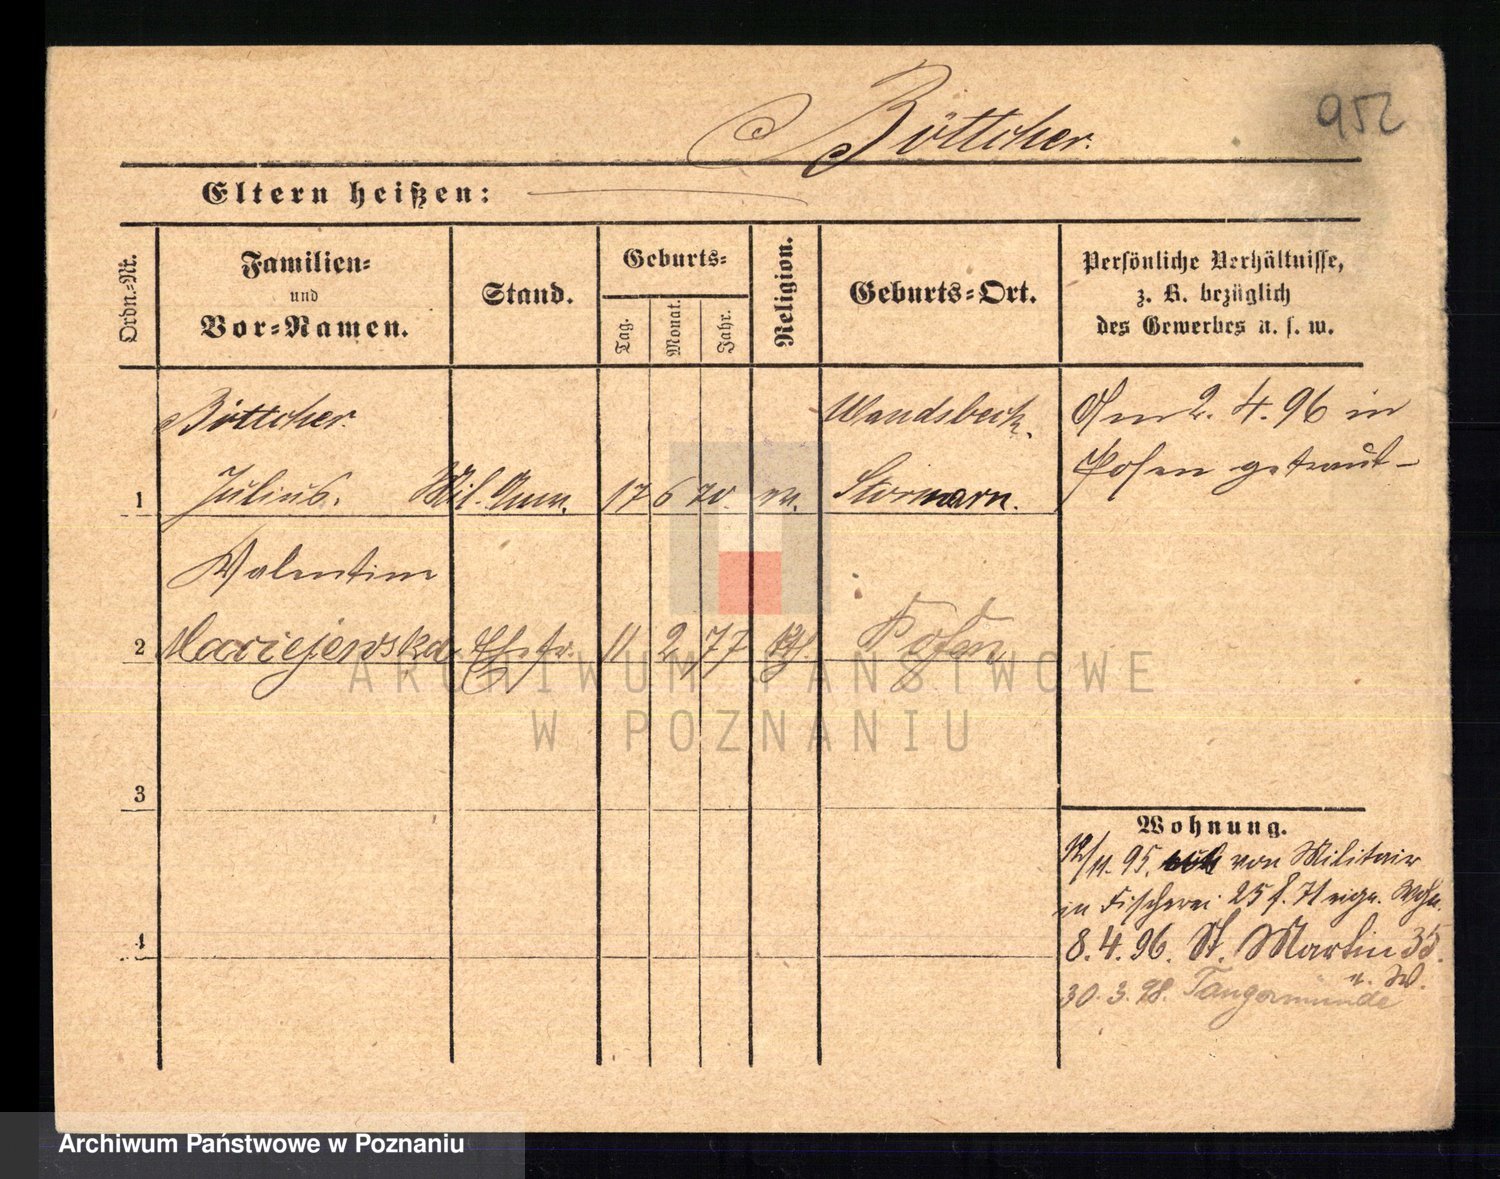 952
Böttcher.
Eltern heißen:
Ordn.-Nr.
Familien-
und
Vor-Namen.
Stand.
Geburts-
Tag.
Monat.
Jahr.
Religion.
Geburts-Ort.
Persönliche Verhältnisse,
z. B. bezüglich
des Gewerbes u. s. w.
Böttcher
Wandsbeck,
Am 2. 4. 96 in
Posen getraut
1 Julius. Mil. 17 6 70. ev. Stormarn.
Valentine
2 Maciejewska Ehefr. 11 2 77 kth. Posen
3
4
Wohnung.
12/11. 95. von Militair
in Fischerei 25 b. H eige. Wohn.
8. 4. 96. St. Martin 35.
30. 3. 98. Tangermünde
ARCHIWUM PAŃSTWOWE
W POZNANIU
Archiwum Państwowe w Poznaniu